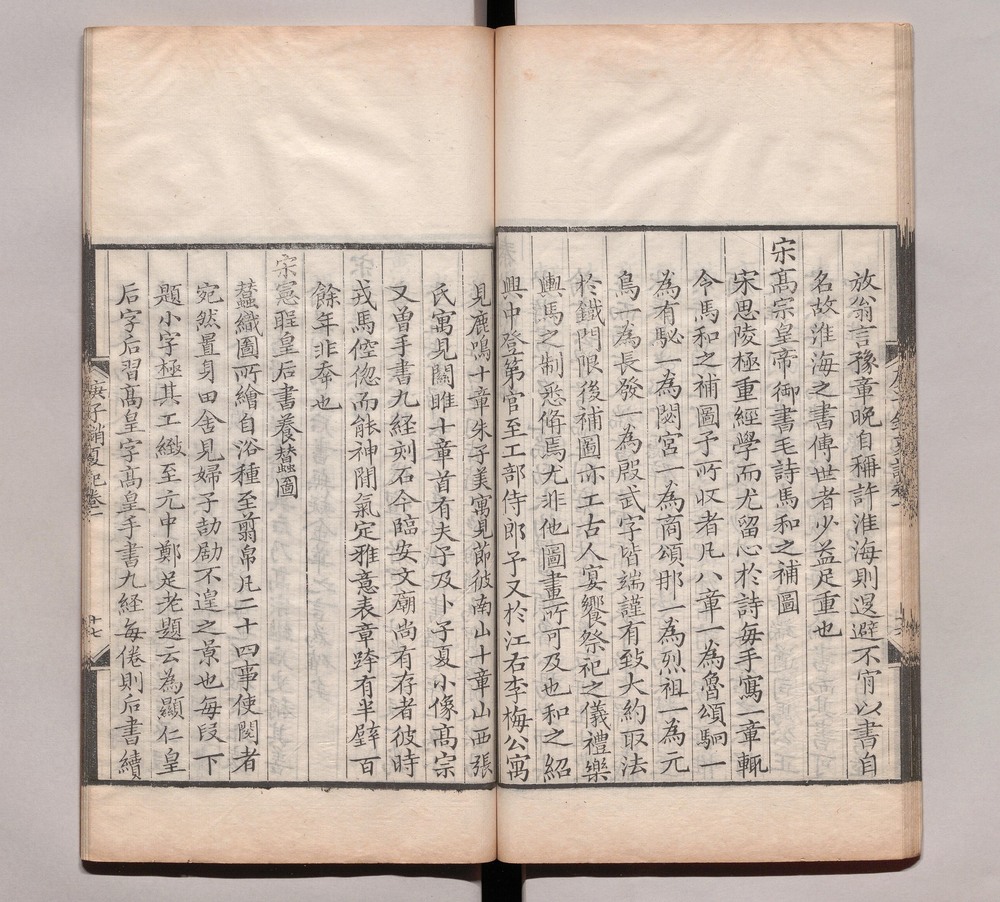 放翁言豫章晚自稱許淮海則退避不肎以書自
名故淮海之書傳世者少益足重也
宋髙宗皇帝御書毛詩馬和之補圖
宋思陵極重經學而尤留心於詩每手寫一章輒
令馬和之補圖予所収者凡八章一為魯頌駉一
為有駜一為閟宮一為商頌那一為烈祖一為元
鳥一為長發一為殷武字皆端謹有致大約取法
於鐵門限後補圖亦工古人宴饗祭祀之儀禮樂
輿馬之制悉俻焉尤非他圖畫所可及也和之紹
興中登第官至工部侍郎予又於江右李梅公寓
見鹿鳴十章朱子美寓見節彼南山十章山西張
氏寓見關雎十章首有夫子及卜子夏小像髙宗
又曾手書九経刻石今臨安文廟尚有存者彼時
戎馬倥偬而能神閒氣定雅意表章跨有半壁百
餘年非幸也
宋憲聖皇后書養蠶圖
蠶織圖所繪自浴種至翦帛凡二十四事使閱者
宛然置身田舍見婦子劼劻不遑之景也每段下
題小字極其工緻至元中鄭足老題云為顯仁皇
后字后習髙皇字髙皇手書九経每倦則后書續
庚子銷夏記卷一
十七